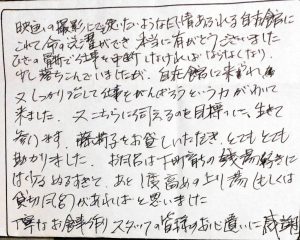 映画の撮影にでも使いたいような風情あふれる自在館に
これて命の洗濯ができ 本当に有がとうございました
ひざの で仕事を中断しなければいけなくなり、
少し落ちこんでいましたが、自在館に来られ
又しっかり治して仕事をがんばろうという力がわいて
来ました。又こちらに伺えるのを目標に、生きて
参ります。 をお貸しいただき、とてもとても
助かりました。お風呂は下町育ちの銭湯好きに
は少々ぬるすぎて、あと1度高めの上り湯(もしくは
貸切風呂)があればと思いました
丁寧なお食事(朝) スタッフの皆様のお心遣いに感謝